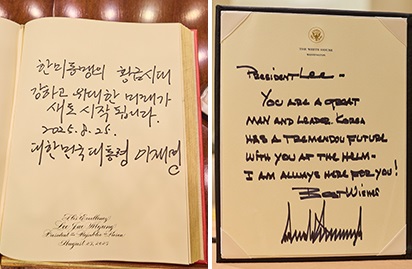 한미동맹의 황금시대
강하고 위대한 미래가
새로 시작됩니다.
2025. 8. 25.
대한민국 대통령 이재명
His Excellency
Lee Jae Myung
President of the Republic of Korea
August 25, 2025
THE WHITE HOUSE
WASHINGTON
PRESIDENT LEE -
YOU ARE A GREAT
MAN AND LEADER. KOREA
HAS A TREMENDOUS FUTURE
WITH YOU AT THE HELM-
I AM ALWAYS HERE FOR YOU!
BEST WISHES